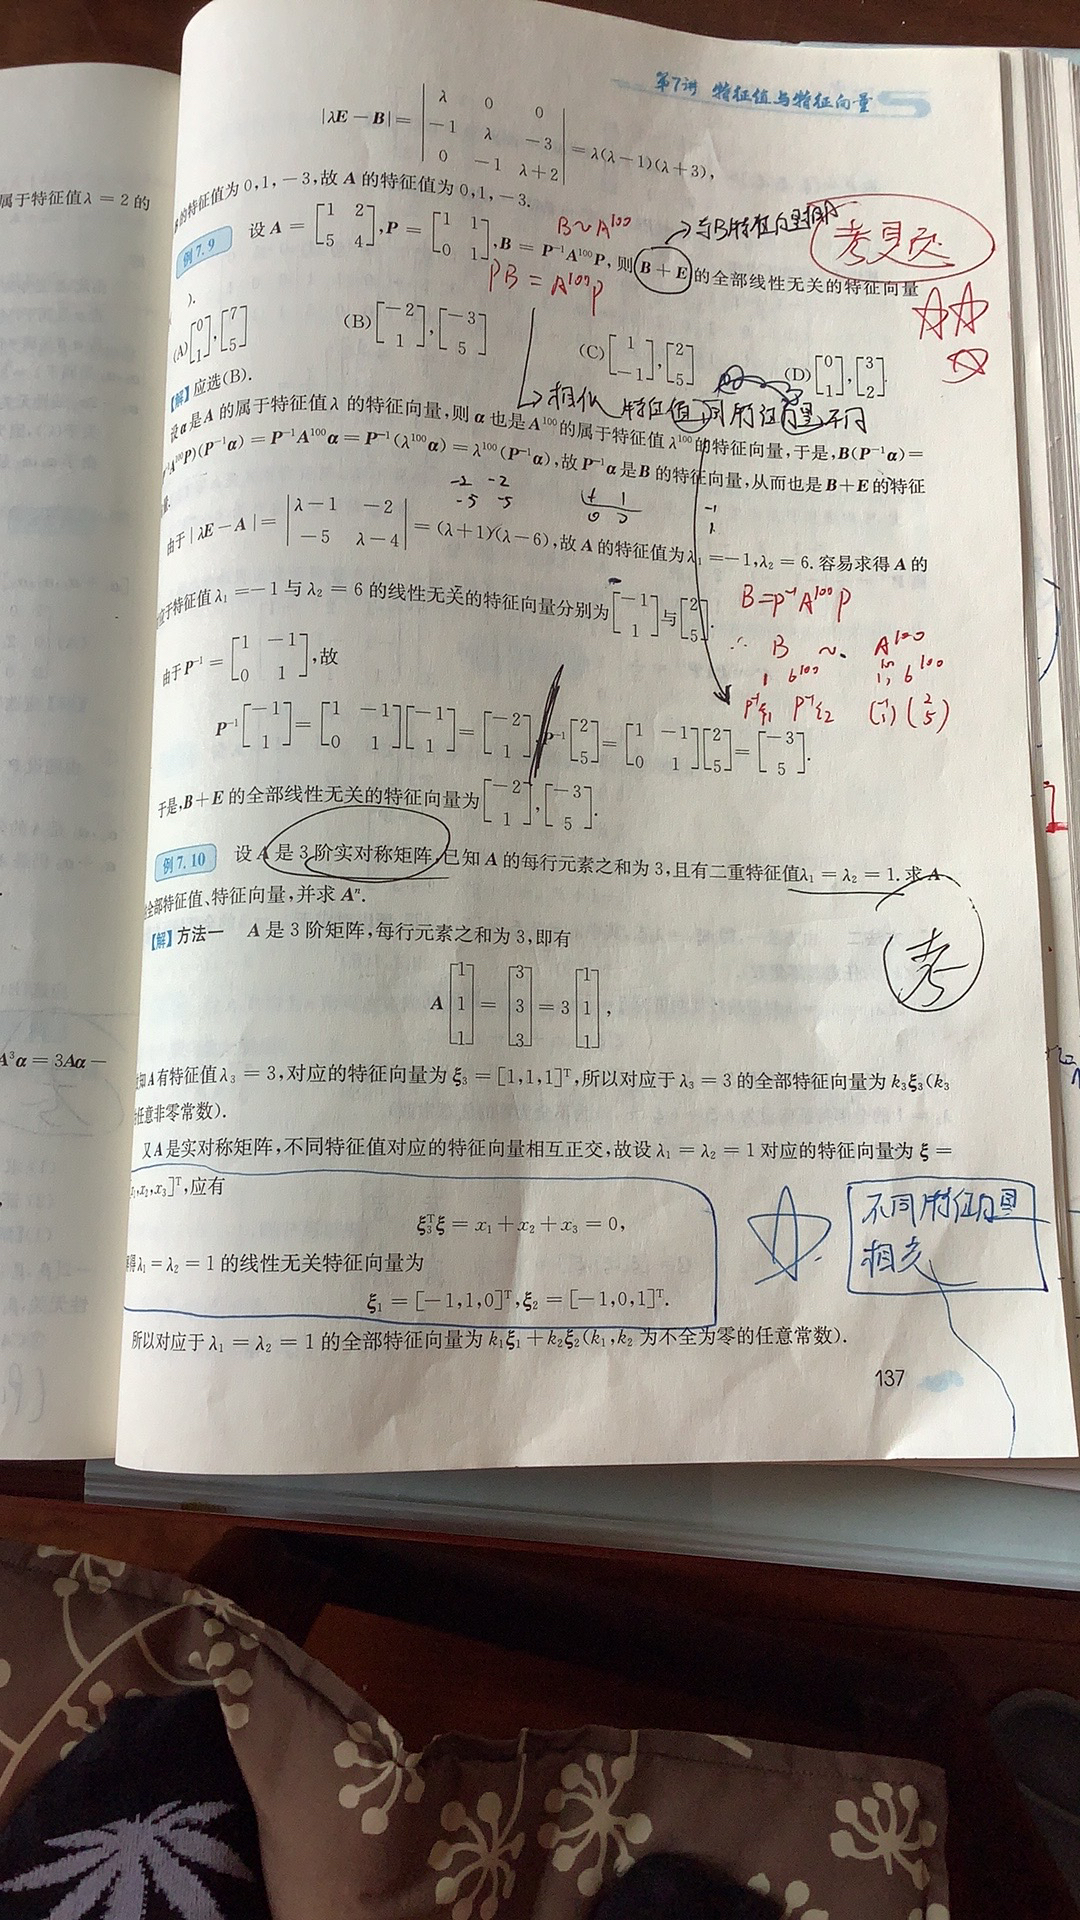 第7讲 特征值与特征向量
|λE－B|＝ | λ 0 0 |
| －1 λ －3 |
| 0 －1 λ＋2 | ＝λ(λ－1)(λ＋3),
的特征值为 0,1,－3,故 A 的特征值为 0,1,－3.
属于特征值λ＝2 的
B∼A¹⁰⁰
考夏改
例 7.9 设 A＝[1 2; 5 4],P＝[1 1; 0 1],B＝P⁻¹A¹⁰⁰P,则 B＋E 的全部线性无关的特征向量
PB＝A¹⁰⁰P
).
(A)[0; 1],[7; 5] (B)[－2; 1],[－3; 5] (C)[1; －1],[2; 5] (D)[0; 1],[3; 2]
【解】应选(B).
相似 特征值同 特征向量不同
设 α 是 A 的属于特征值 λ 的特征向量,则 α 也是 A¹⁰⁰ 的属于特征值 λ¹⁰⁰ 的特征向量,于是,B(P⁻¹α)＝
A¹⁰⁰P)(P⁻¹α)＝P⁻¹A¹⁰⁰α＝P⁻¹(λ¹⁰⁰α)＝λ¹⁰⁰(P⁻¹α),故 P⁻¹α 是 B 的特征向量,从而也是 B＋E 的特征
量.
－2 －2
－5 －5
－1
1
由于|λE－A|＝ | λ－1 －2 |
| －5 λ－4 | ＝(λ＋1)(λ－6),故 A 的特征值为λ₁＝－1,λ₂＝6. 容易求得 A 的
应于特征值 λ₁＝－1 与 λ₂＝6 的线性无关的特征向量分别为[－1; 1]与[2; 5].
B＝P⁻¹A¹⁰⁰P
∴ B ∼ A¹⁰⁰
1 6¹⁰⁰ 1, 6¹⁰⁰
P⁻¹ξ₁ P⁻¹ξ₂ (－1; 1) (2; 5)
由于 P⁻¹＝[1 －1; 0 1],故
P⁻¹[－1; 1]＝[1 －1; 0 1][－1; 1]＝[－2; 1],P⁻¹[2; 5]＝[1 －1; 0 1][2; 5]＝[－3; 5].
于是,B＋E 的全部线性无关的特征向量为[－2; 1],[－3; 5].
例 7.10 设 A 是 3 阶实对称矩阵,已知 A 的每行元素之和为 3,且有二重特征值λ₁＝λ₂＝1. 求 A
全部特征值、特征向量,并求 Aⁿ.
考
【解】方法一 A 是 3 阶矩阵,每行元素之和为 3,即有
A[1; 1; 1]＝[3; 3; 3]＝3[1; 1; 1],
A³α＝3Aα－
知 A 有特征值 λ₃＝3,对应的特征向量为 ξ₃＝[1,1,1]ᵀ,所以对应于 λ₃＝3 的全部特征向量为 k₃ξ₃(k₃
任意非零常数).
又 A 是实对称矩阵,不同特征值对应的特征向量相互正交,故设 λ₁＝λ₂＝1 对应的特征向量为 ξ＝
x₁,x₂,x₃]ᵀ,应有
不同特征向量
相交
ξ₃ᵀξ＝x₁＋x₂＋x₃＝0,
得 λ₁＝λ₂＝1 的线性无关特征向量为
ξ₁＝[－1,1,0]ᵀ,ξ₂＝[－1,0,1]ᵀ.
所以对应于 λ₁＝λ₂＝1 的全部特征向量为 k₁ξ₁＋k₂ξ₂(k₁,k₂ 为不全为零的任意常数).
137